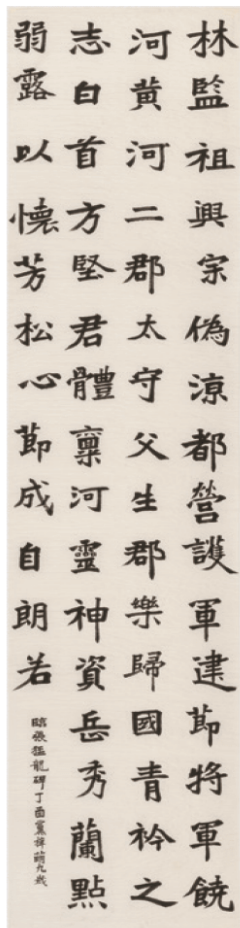 林監祖興宗偽涼都營護軍建節將軍饒
河黃河二郡太守父生郡樂歸國青衿之
志白首方堅君體稟河靈神資岳秀蘭點
弱露以懷芳松心節成自朗若
臨張猛龍碑丁酉梓萌九歲